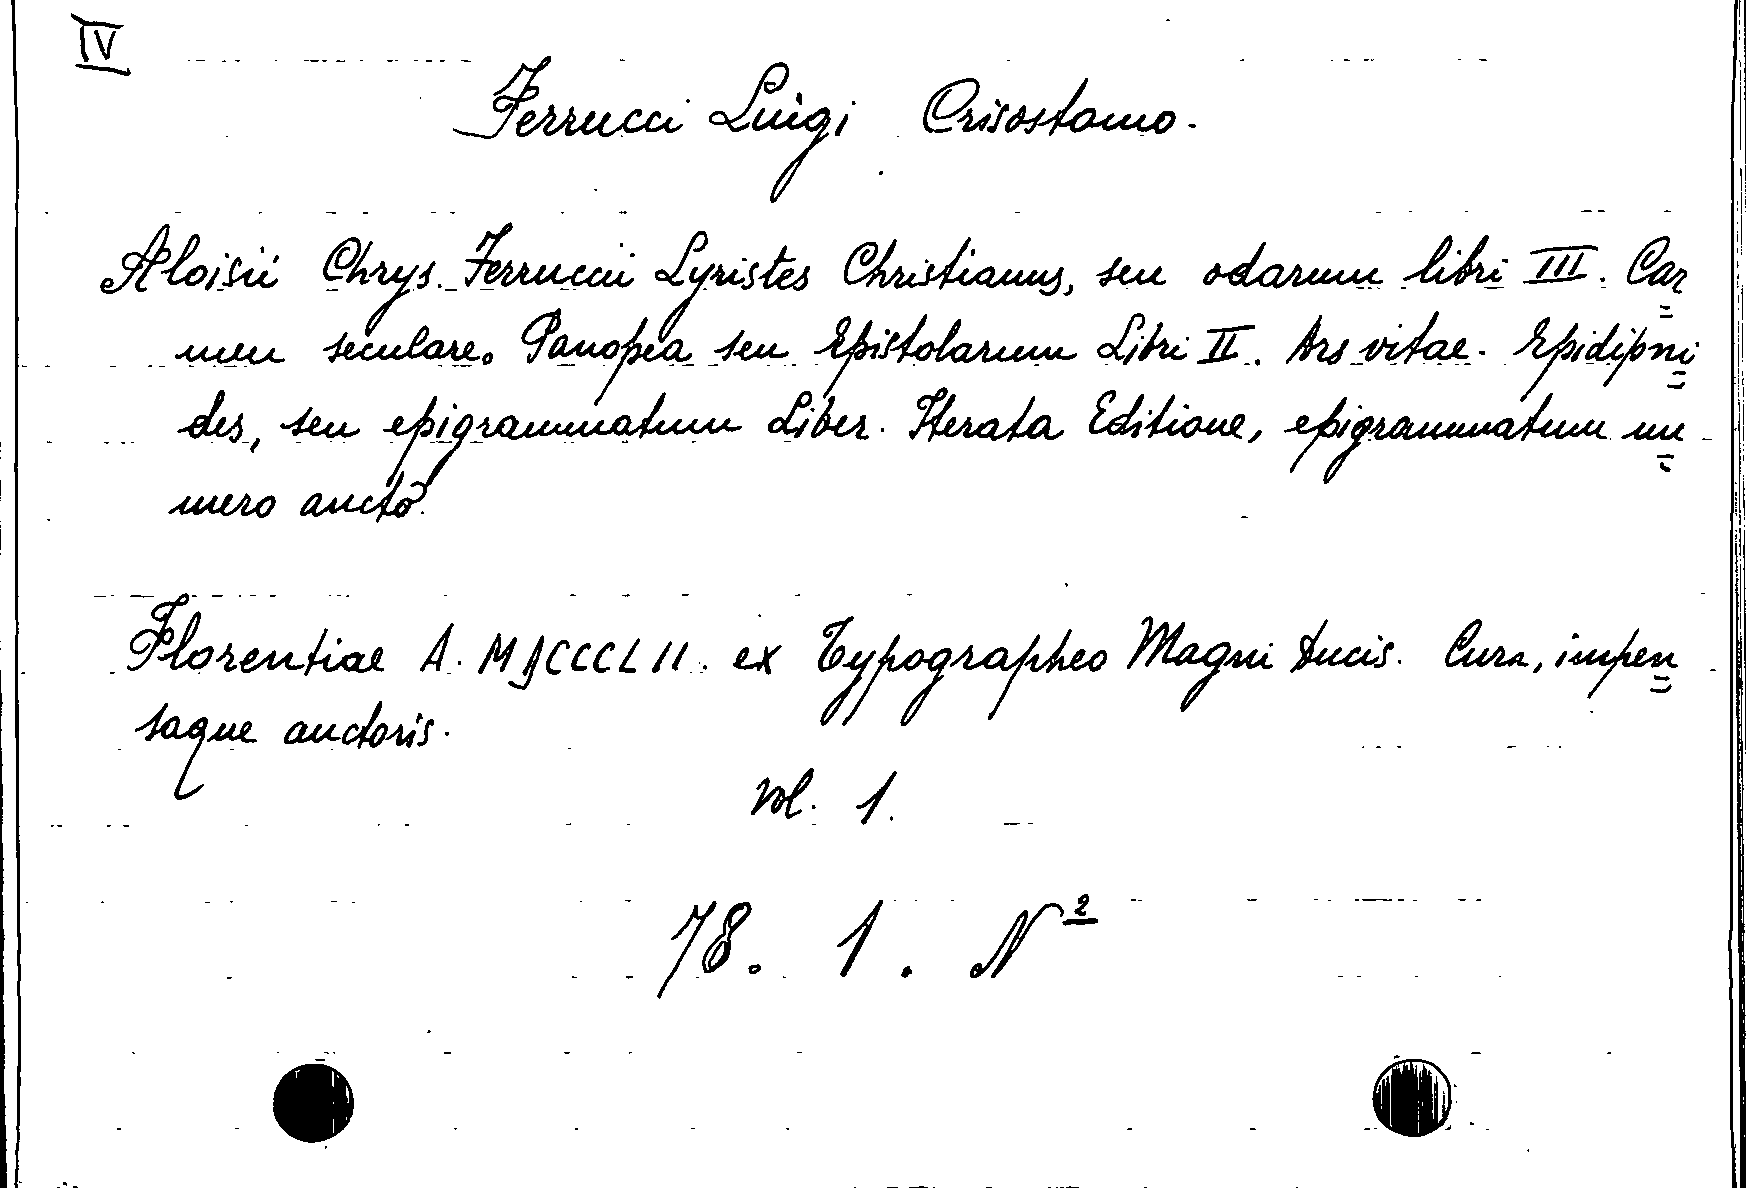 IV
Ferrucci Luigi Crisostomo.
Aloisii Chrys. Ferruccii Lyristes Christianus, seu odarum libri III. Car=
men seculare. Panopea seu Epistolarum Libri II. Ars vitae. Epidipni=
des, seu epigrammatum Liber. Iterata Editione, epigrammatum nu=
mero aucto.
Florentiae A. MDCCCLII. ex Typographeo Magni Ducis. Cura, impen=
saque auctoris.
Vol. 1.
78. 1. N²